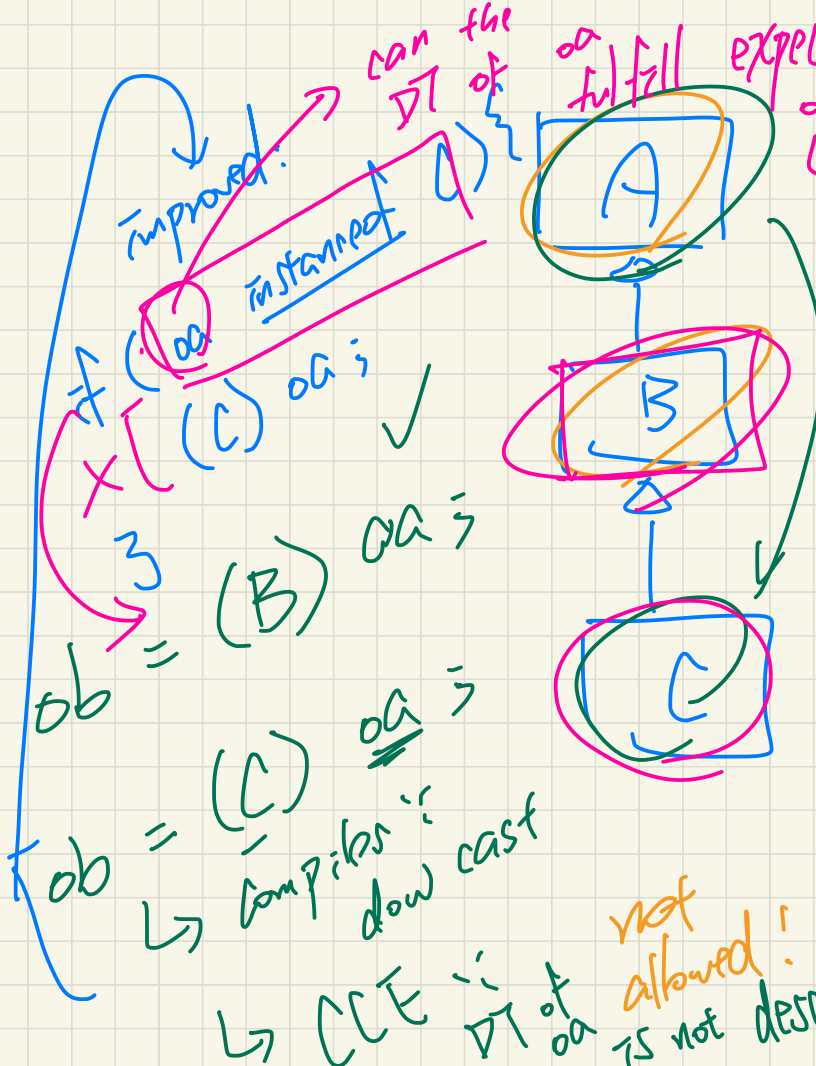 can the
DT of
oa
fulfill
improved!
if (oa instanceof C) {
(C) oa;
}
ob = (B) oa;
ob = (C) oa;
↳ compiles ∵
down cast
↳ CCE ∵ DT of
oa
is not
not
allowed!
A
B
C